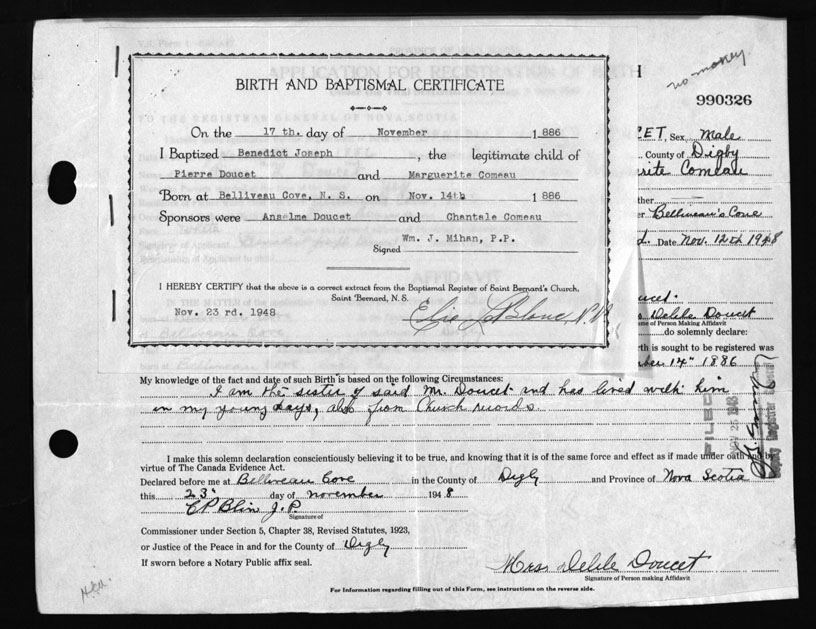 BIRTH AND BAPTISMAL CERTIFICATE
On the 17 th. day of November 1886
I Baptized Benedict Joseph, the legitimate child of
Pierre Doucet and Marguerite Comeau
Born at Belliveau Cove, N. S. on Nov. 14th 1886
Sponsors were Anselme Doucet and Chantale Comeau
Signed Wm. J. Mihan, P.P.
I HEREBY CERTIFY that the above is a correct extract from the Baptismal Register of Saint Bernard's Church,
Saint Bernard, N. S.
Nov. 23 rd. 1948
Elie LeBlanc, P.P.
no money
990326
CET, Sex, Male
County of Digby
rite Comeau
ther
er Belliveau's Cove
d. Date Nov. 12th 1948
oucet.
s Delile Doucet
me of Person Making Affidavit
do solemnly declare:
rth is sought to be registered was
ber 14" 1886
My knowledge of the fact and date of such Birth is based on the following Circumstances:
I am the sister of said Mr. Doucet and has lived with him
in my young days, also from Church records.
FILED
NOV 25 1948
I make this solemn declaration conscientiously believing it to be true, and knowing that it is of the same force and effect as if made under oath and by
virtue of The Canada Evidence Act.
Declared before me at Belliveau Cove in the County of Digby and Province of Nova Scotia
this 23" day of november 1948
C P Blin J.P.
Signature of
Commissioner under Section 5, Chapter 38, Revised Statutes, 1923,
or Justice of the Peace in and for the County of Digby
If sworn before a Notary Public affix seal.
Mrs Delile Doucet
Signature of Person making Affidavit
For Information regarding filling out of this Form, see instructions on the reverse side.